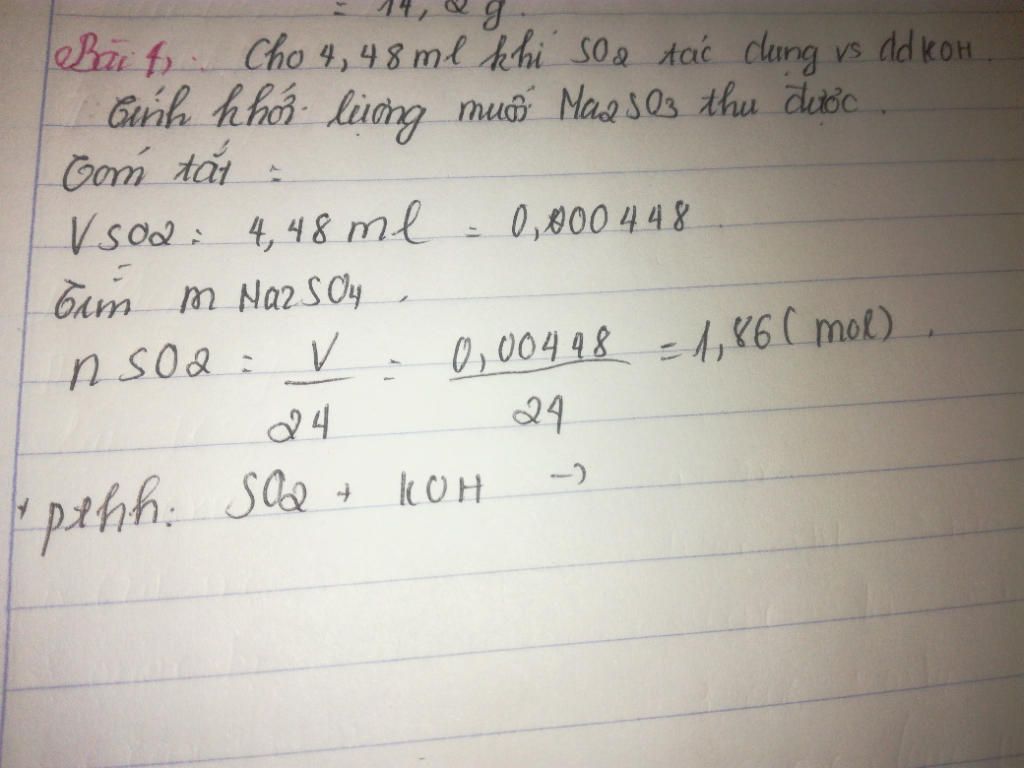 = 14,2 g.
Bài 1, Cho 4,48 ml khí SO2 tác dụng vs dd KOH.
Tính khối lượng muối Na2SO3 thu được.
Tóm tắt :
VSO2 : 4,48 ml = 0,000448
Tìm m Na2SO4.
n SO2 = V/24 = 0,00448/24 = 1,86 (mol).
+ pthh: SO2 + KOH →